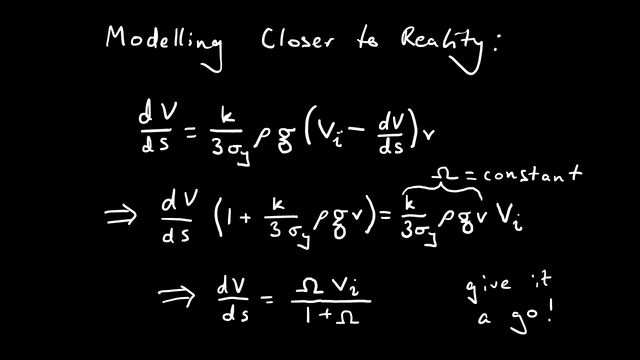 Modelling Closer to Reality:
dV/ds = k/3σy ρg (Vi − dV/ds) v
Ω = constant
⇒ dV/ds (1 + k/3σy ρgv) = k/3σy ρgv Vi
⇒ dV/ds = Ω Vi / 1+Ω
give it
a go!